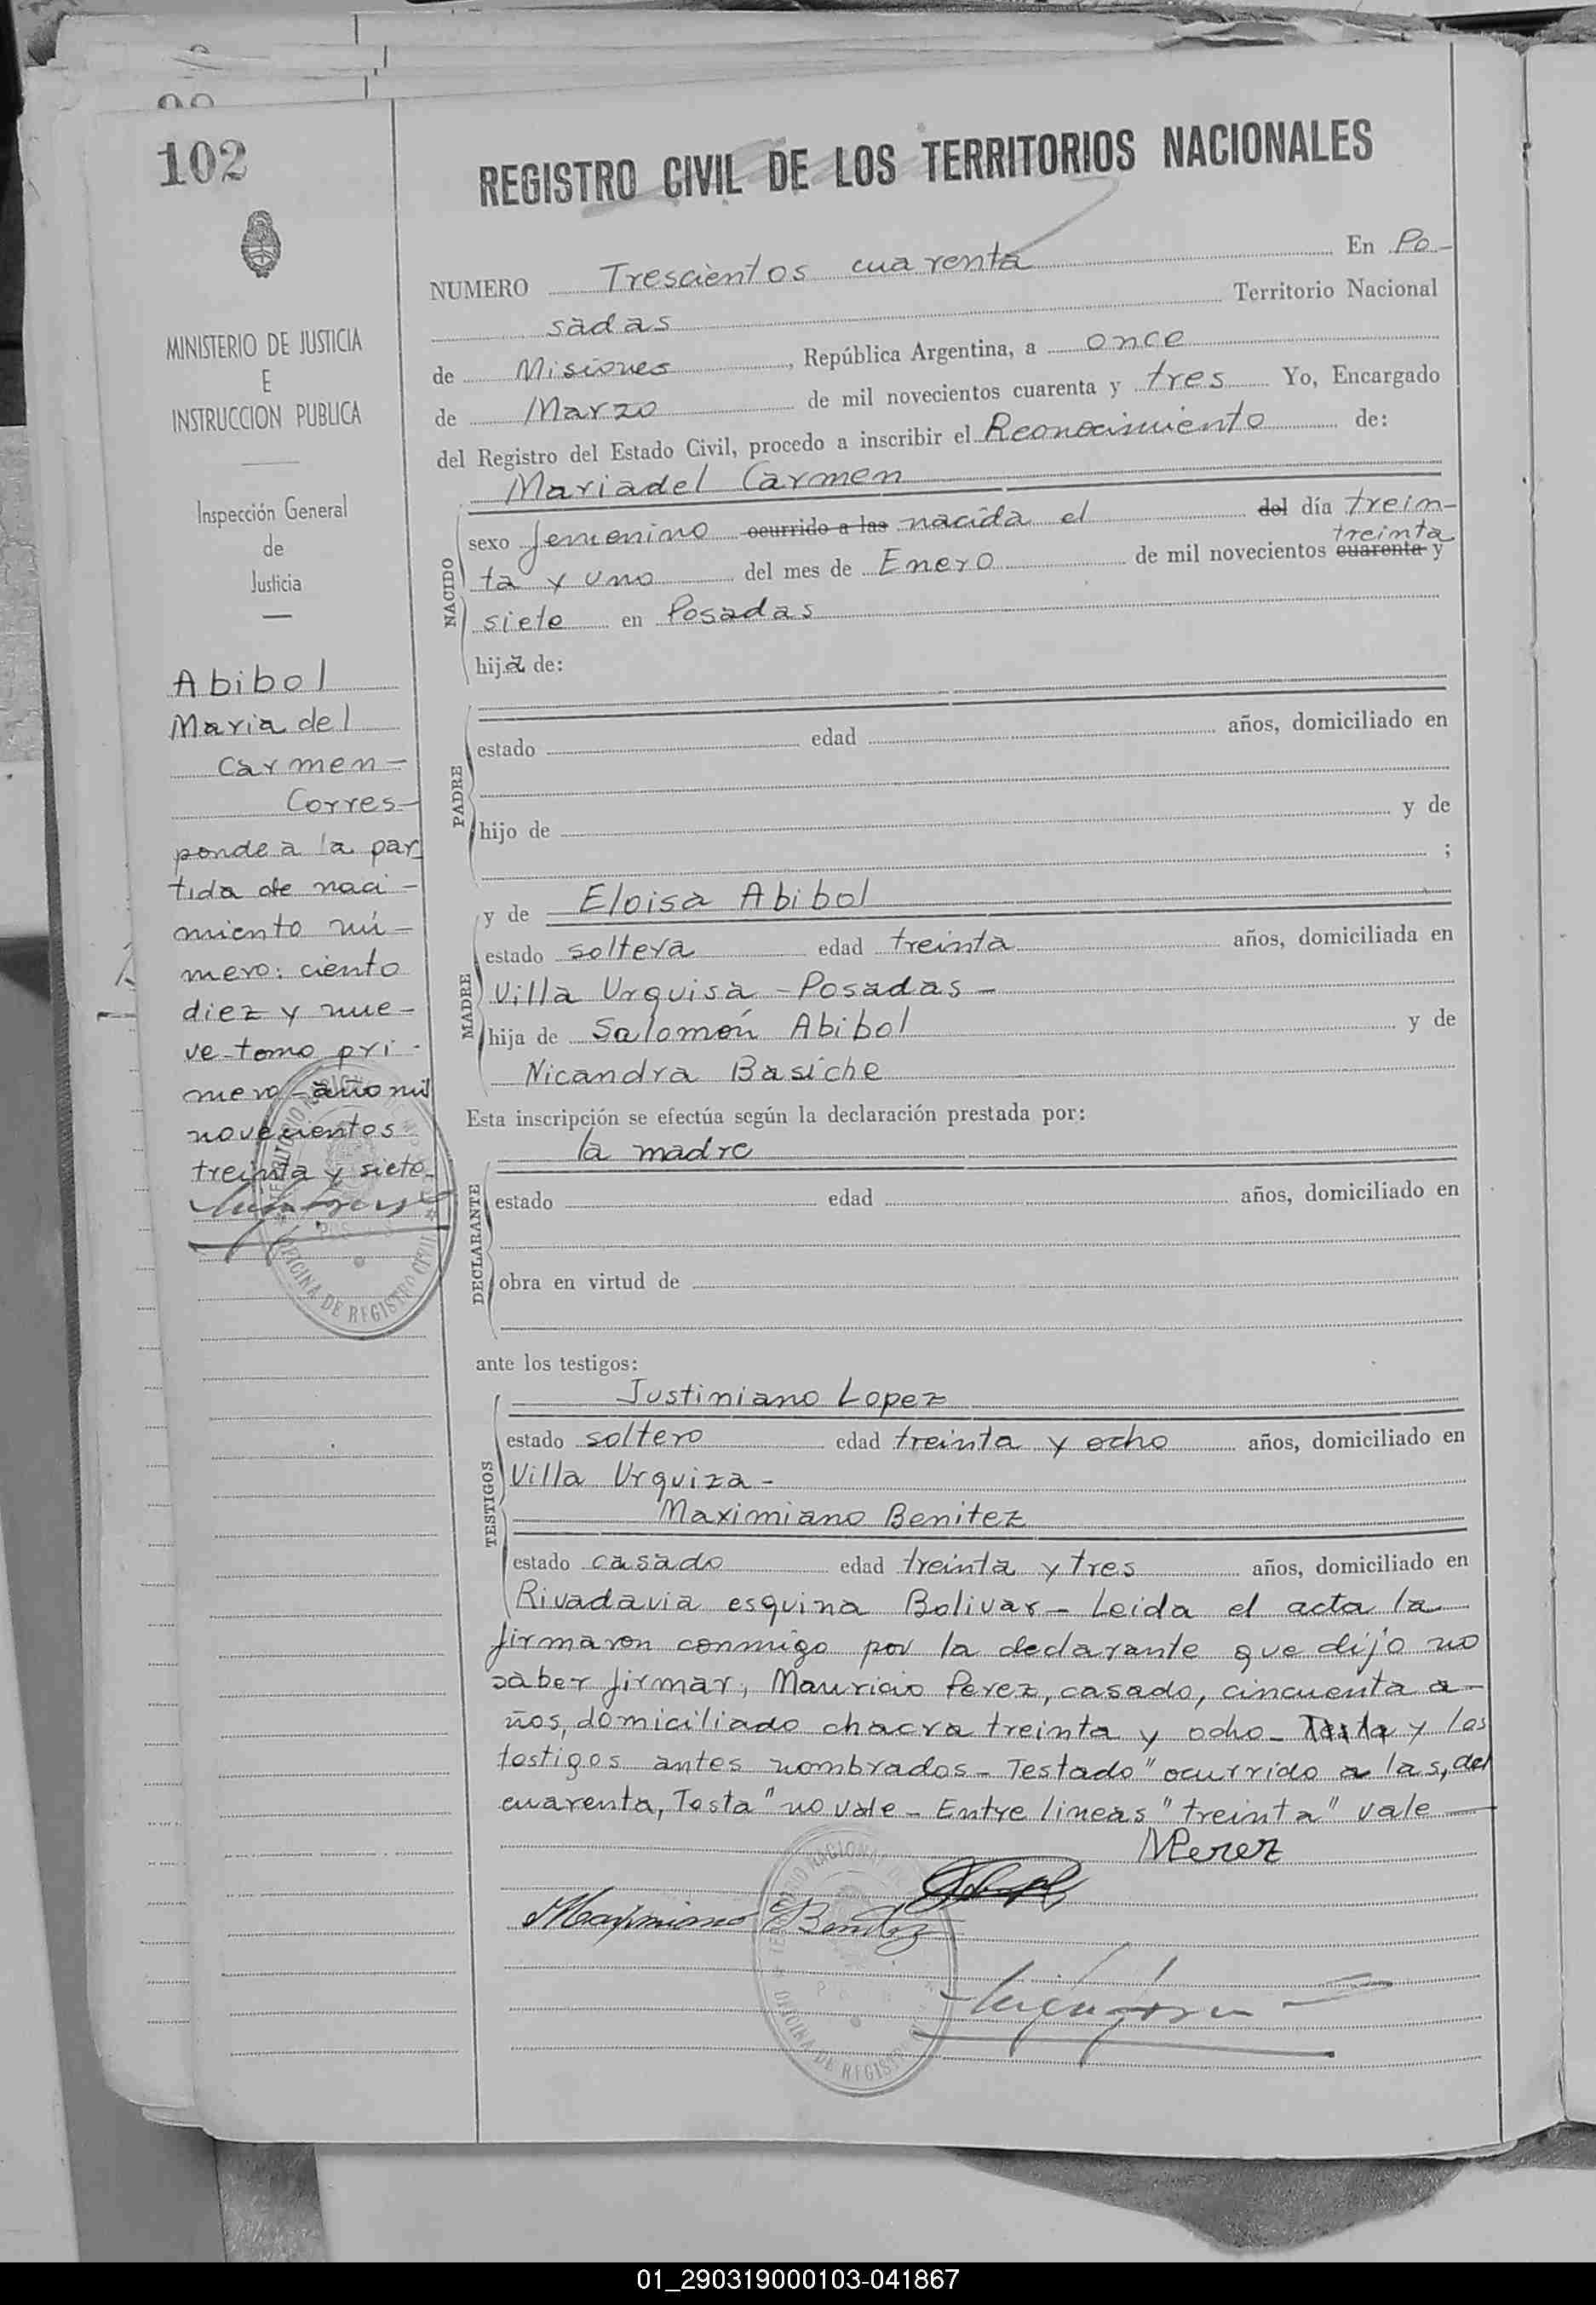 102
MINISTERIO DE JUSTICIA
E
INSTRUCCION PUBLICA
Inspección General
de
Justicia
Abibol
Maria del
Carmen-
Corres-
ponde a la par-
tida de naci-
miento nú-
mero: ciento
diez y nue-
ve-tomo pri-
mero-año mil
novecientos
treinta y siete-
OFICINA DE REGISTRO CIVIL
REGISTRO CIVIL DE LOS TERRITORIOS NACIONALES
NUMERO Trescientos cuarenta En Po-
sadas Territorio Nacional
de Misiones, República Argentina, a once
de Marzo de mil novecientos cuarenta y tres Yo, Encargado
del Registro del Estado Civil, procedo a inscribir el Reconocimiento de:
Mariadel Carmen
NACIDO
sexo femenino ocurrido a las nacida el del día trein-
treinta
ta y uno del mes de Enero de mil novecientos cuarenta y
siete en Posadas
hija de:
PADRE
estado edad años, domiciliado en
hijo de y de
;
MADRE
y de Eloisa Abibol
estado soltera edad treinta años, domiciliada en
Villa Urquisa - Posadas -
hija de Salomón Abibol y de
Nicandra Basiche
Esta inscripción se efectúa según la declaración prestada por:
la madre
DECLARANTE
estado edad años, domiciliado en
obra en virtud de
ante los testigos:
TESTIGOS
Justiniano Lopez
estado soltero edad treinta y ocho años, domiciliado en
Villa Urquiza -
Maximiano Benitez
estado casado edad treinta y tres años, domiciliado en
Rivadavia esquina Bolivar - Leida el acta la
firmaron conmigo por la declarante que dijo no
saber firmar, Mauricio Perez, casado, cincuenta a-
ños, domiciliado chacra treinta y ocho - Testa y los
testigos antes nombrados - Testado "ocurrido a las, del
cuarenta, Testa" no vale - Entre lineas "treinta" vale
MPerez
Maximiano Benitez
OFICINA DE REGIST
01_290319000103-041867